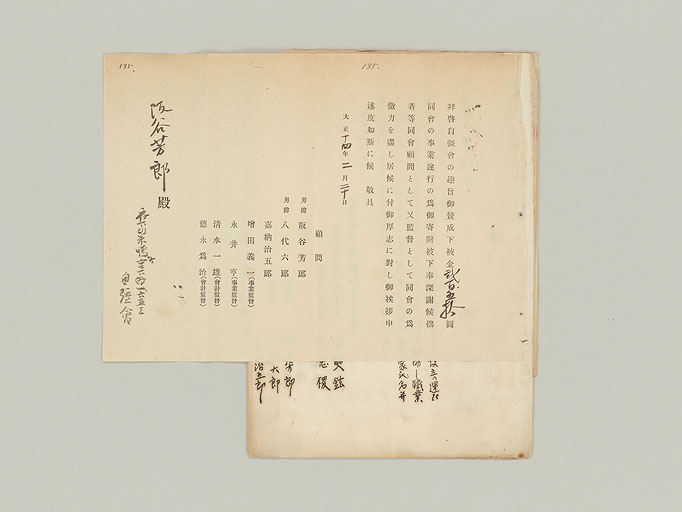 135.
135.
拜啓自彊會の趣旨御賛成下被金貳百五拾圓
同會の事業遂行の爲御寄附被下奉深謝候拙
者等同會顧問として又監督として同會の爲
微力を盡し居候に付御厚志に對し御挨拶申
述度如斯に候 敬具
大正十四年二月二十日
顧問
男爵 阪谷芳郎
男爵 八代六郎
嘉納治五郎
增田義一(事業監督)
永井亨(事業監督)
清水一雄(會計監督)
德永爲治(會計監督)
阪谷芳郎殿
自彊會
職業
芳郎
六郎
治五郎